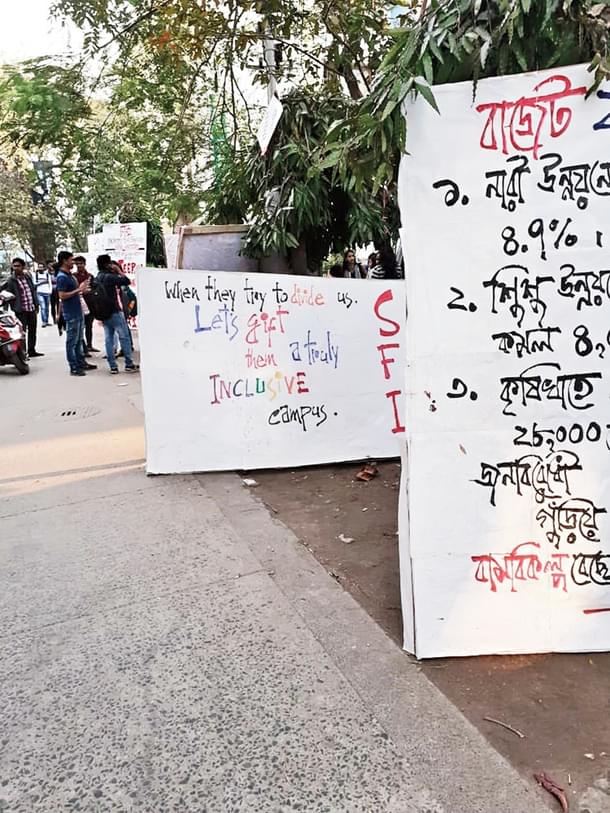 When they try to divide us.
Let's gift
them a truly
INCLUSIVE
campus.
S
F
I
বাজেট
১. নারী উন্নয়নে
৪.৭% ।
২. শিশু উন্নয়ন
কমল ৪,
৩. কৃষিখাতে
২৮,০০০
জনবিরোধী
গুঁড়িয়ে
বামবিকল্প বেছে